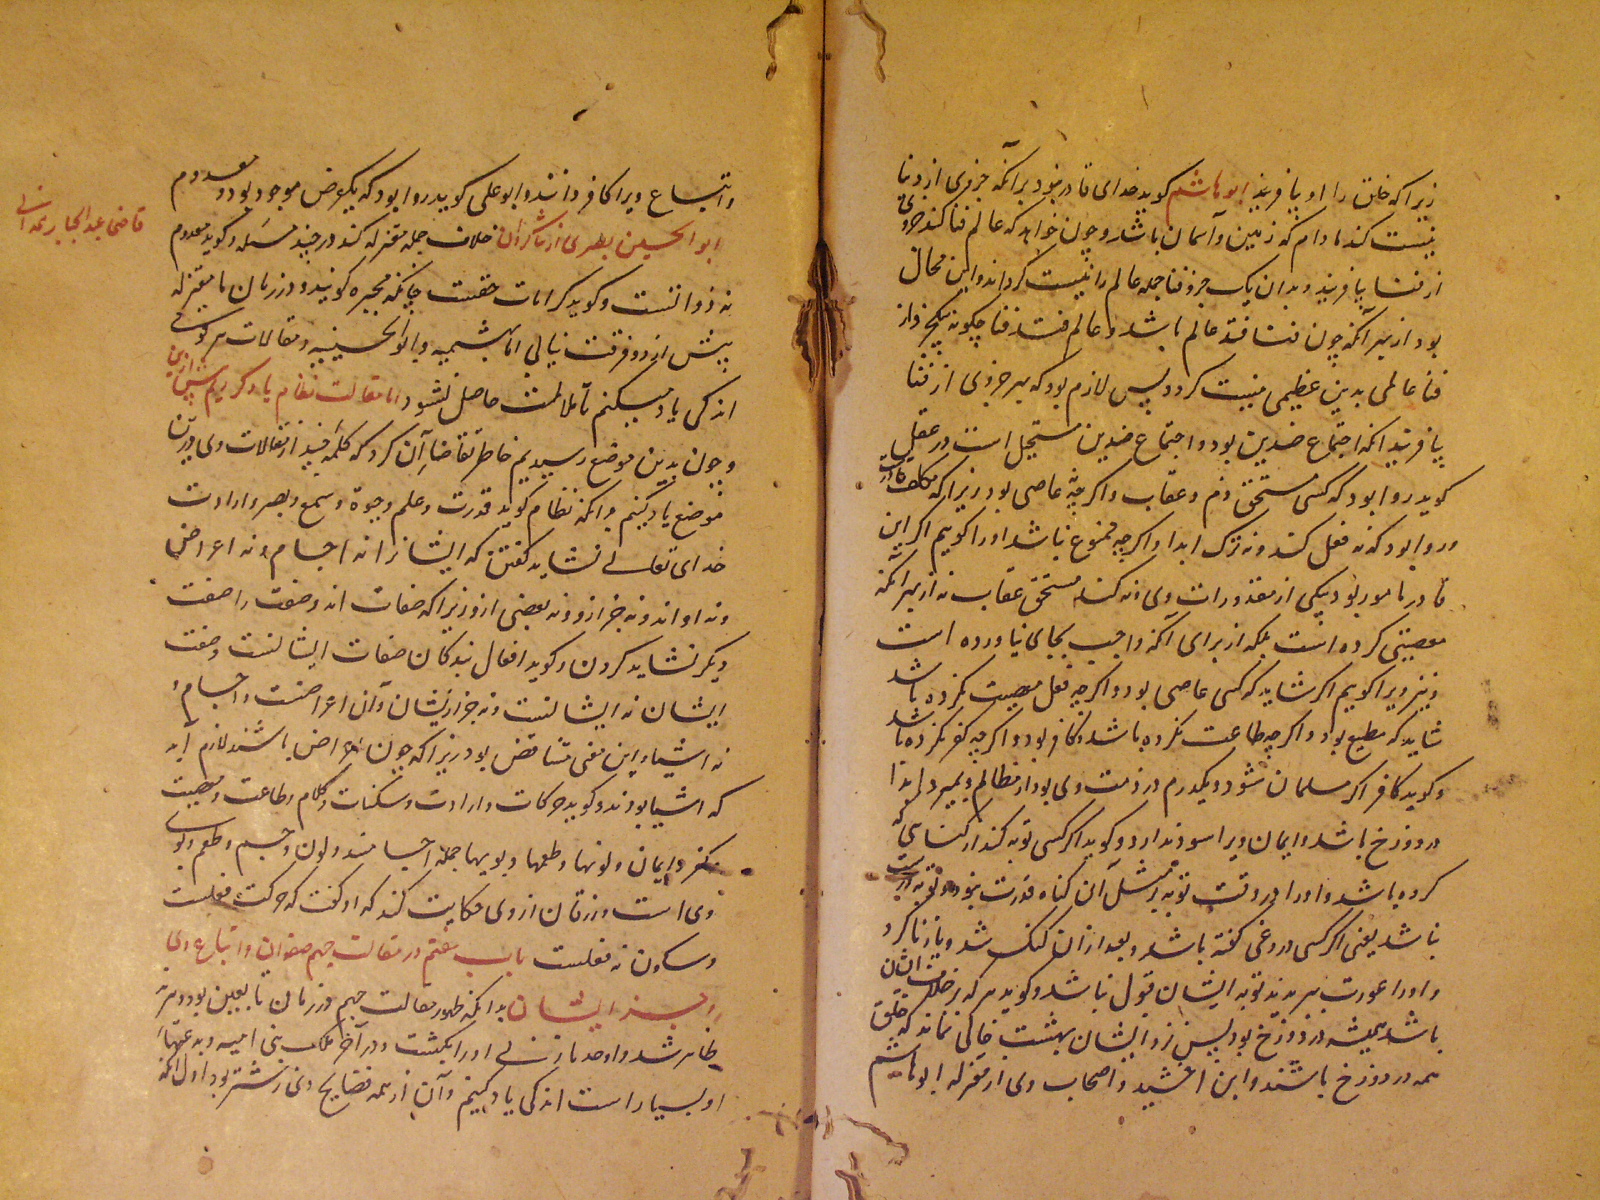 زیرا که خلق را او بیافریند ابوهاشم گوید خدای قادر نبود برآنکه جزوی از دنیا
نیست کند مادام که زمین و آسمان باشد و چون خواهد که عالم فنا کند جزوی
از فنا بیافریند و بدان یک جزو فنا جمله عالم را نیست گرداند و این محال
بود از بهر آنکه چون فنا ضد عالم باشد و عالم ضد فنا چگونه بیکجزو از
فنا عالمی بدین عظیمی نیست گردد پس لازم بود که هر جزوی از فنا
بیافریند آنکه اجتماع ضدین بود و اجتماع ضدین مستحیل است در عقل
گوید روا بود که کسی مستحق ذم و عقاب و اگرچه عاصی بود زیرا که مکلف قادر
و روا بود که نه فعل کند و نه ترک ابدا و اگرچه ممنوع نباشد او را گوییم اگر این
قادر مامور بود بیکی از مقدورات وی نه کند مستحق عقاب نه از بهر آنکه
معصیتی کرده است بلکه از برای آنکه واجب بجای نیاورده است
و نیز ویرا گوییم اگر شاید که کسی عاصی بود و اگرچه فعل معصیت نکرده باشد
شاید که مطیع بود و اگرچه طاعت نکرده باشد و کافر بود و اگرچه کفر نکرده باشد
و گوید کافر اگر مسلمان شود و یکدرم در ذمت وی بود از مظالم و بمیرد ابدا
در دوزخ باشد و ایمان ویرا سود ندارد و گوید اگر کسی توبه کند از گناهی که
کرده باشد و او را در وقت توبه بر مثل آن گناه قدرت نبود توبه درست
نباشد یعنی اگر کسی دروغی گفته باشد و بعد از آن گنگ شد و یا زنا کرد
و او را عورت ببریدند توبه ایشان قبول نباشد و گوید هر که بر خلاف ایشان
باشد همیشه در دوزخ بود پس نزد ایشان بهشت خالی نماند که خلق
همه در دوزخ باشند و ابن اخشید و اصحاب وی از معتزله ابوهاشم
و اتباع ویرا کافر دانند و ابوعلی گوید روا بود که یک عرض موجود بود و معدوم
ابوالحسین بصری از شاگردان خلاف جمله معتزله کند در چند مسئله و گوید معدوم
قاضی عبدالجبار همدانی
نه ذواتست و گوید کرامات حقست چنانکه مجبره گویند و در زمان ما معتزله
بیش از دو فرقت نیابی اما بهشمیه و ابوالحسینیه و مقالات هر گروهی
اندکی یاد میکنیم تا ملالت حاصل نشود اما مقالت نظام یاد کردیم پیش ازین
و چون بدین موضع رسیدیم خاطر تقاضاء آن کرد که کلمه چند از مقالات وی درین
موضع یاد کنیم بدانکه نظام گوید قدرت و علم و حیوة و سمع و بصر و ارادت
خدای تعالی نشاید گفتن که ایشانرا نه اجسام و نه اعراض
و نه او اند و نه جز ازو و نه بعضی ازو زیرا که صفات اند و صفت را صفت
دیگر نشاید کردن و گوید افعال بندگان صفات ایشانست و صفت
ایشان نه ایشانست و نه جز ازیشان و آن اعراضست و اجسام و
نه اشیا و این معنی متناقض بود زیرا که چون اعراض باشند لازم آید
که اشیا بودند و گوید حرکات و ارادت و سکنات و کلام و طاعت و معصیت
کفر و ایمان و لونها و طعمها و بویها جمله اجسامند و لون و جسم و طعم و بوی
وی است وزرقان از وی حکایت کند که او گفت که حرکت فعلست
و سکون نه فعلست باب هفتم در مقالت جهم صفوان و اتباع وی
ایشان بدانکه ظهور مقالت جهم در زمان تابعین بود و
ظاهر شد و اوحد مازنی او را بکشت و در آخر ملک بنی امیه و بدعتهاء
او بسیار است اندکی یاد کنیم و آن از همه فضایح وی زشتتر بود اول آنکه